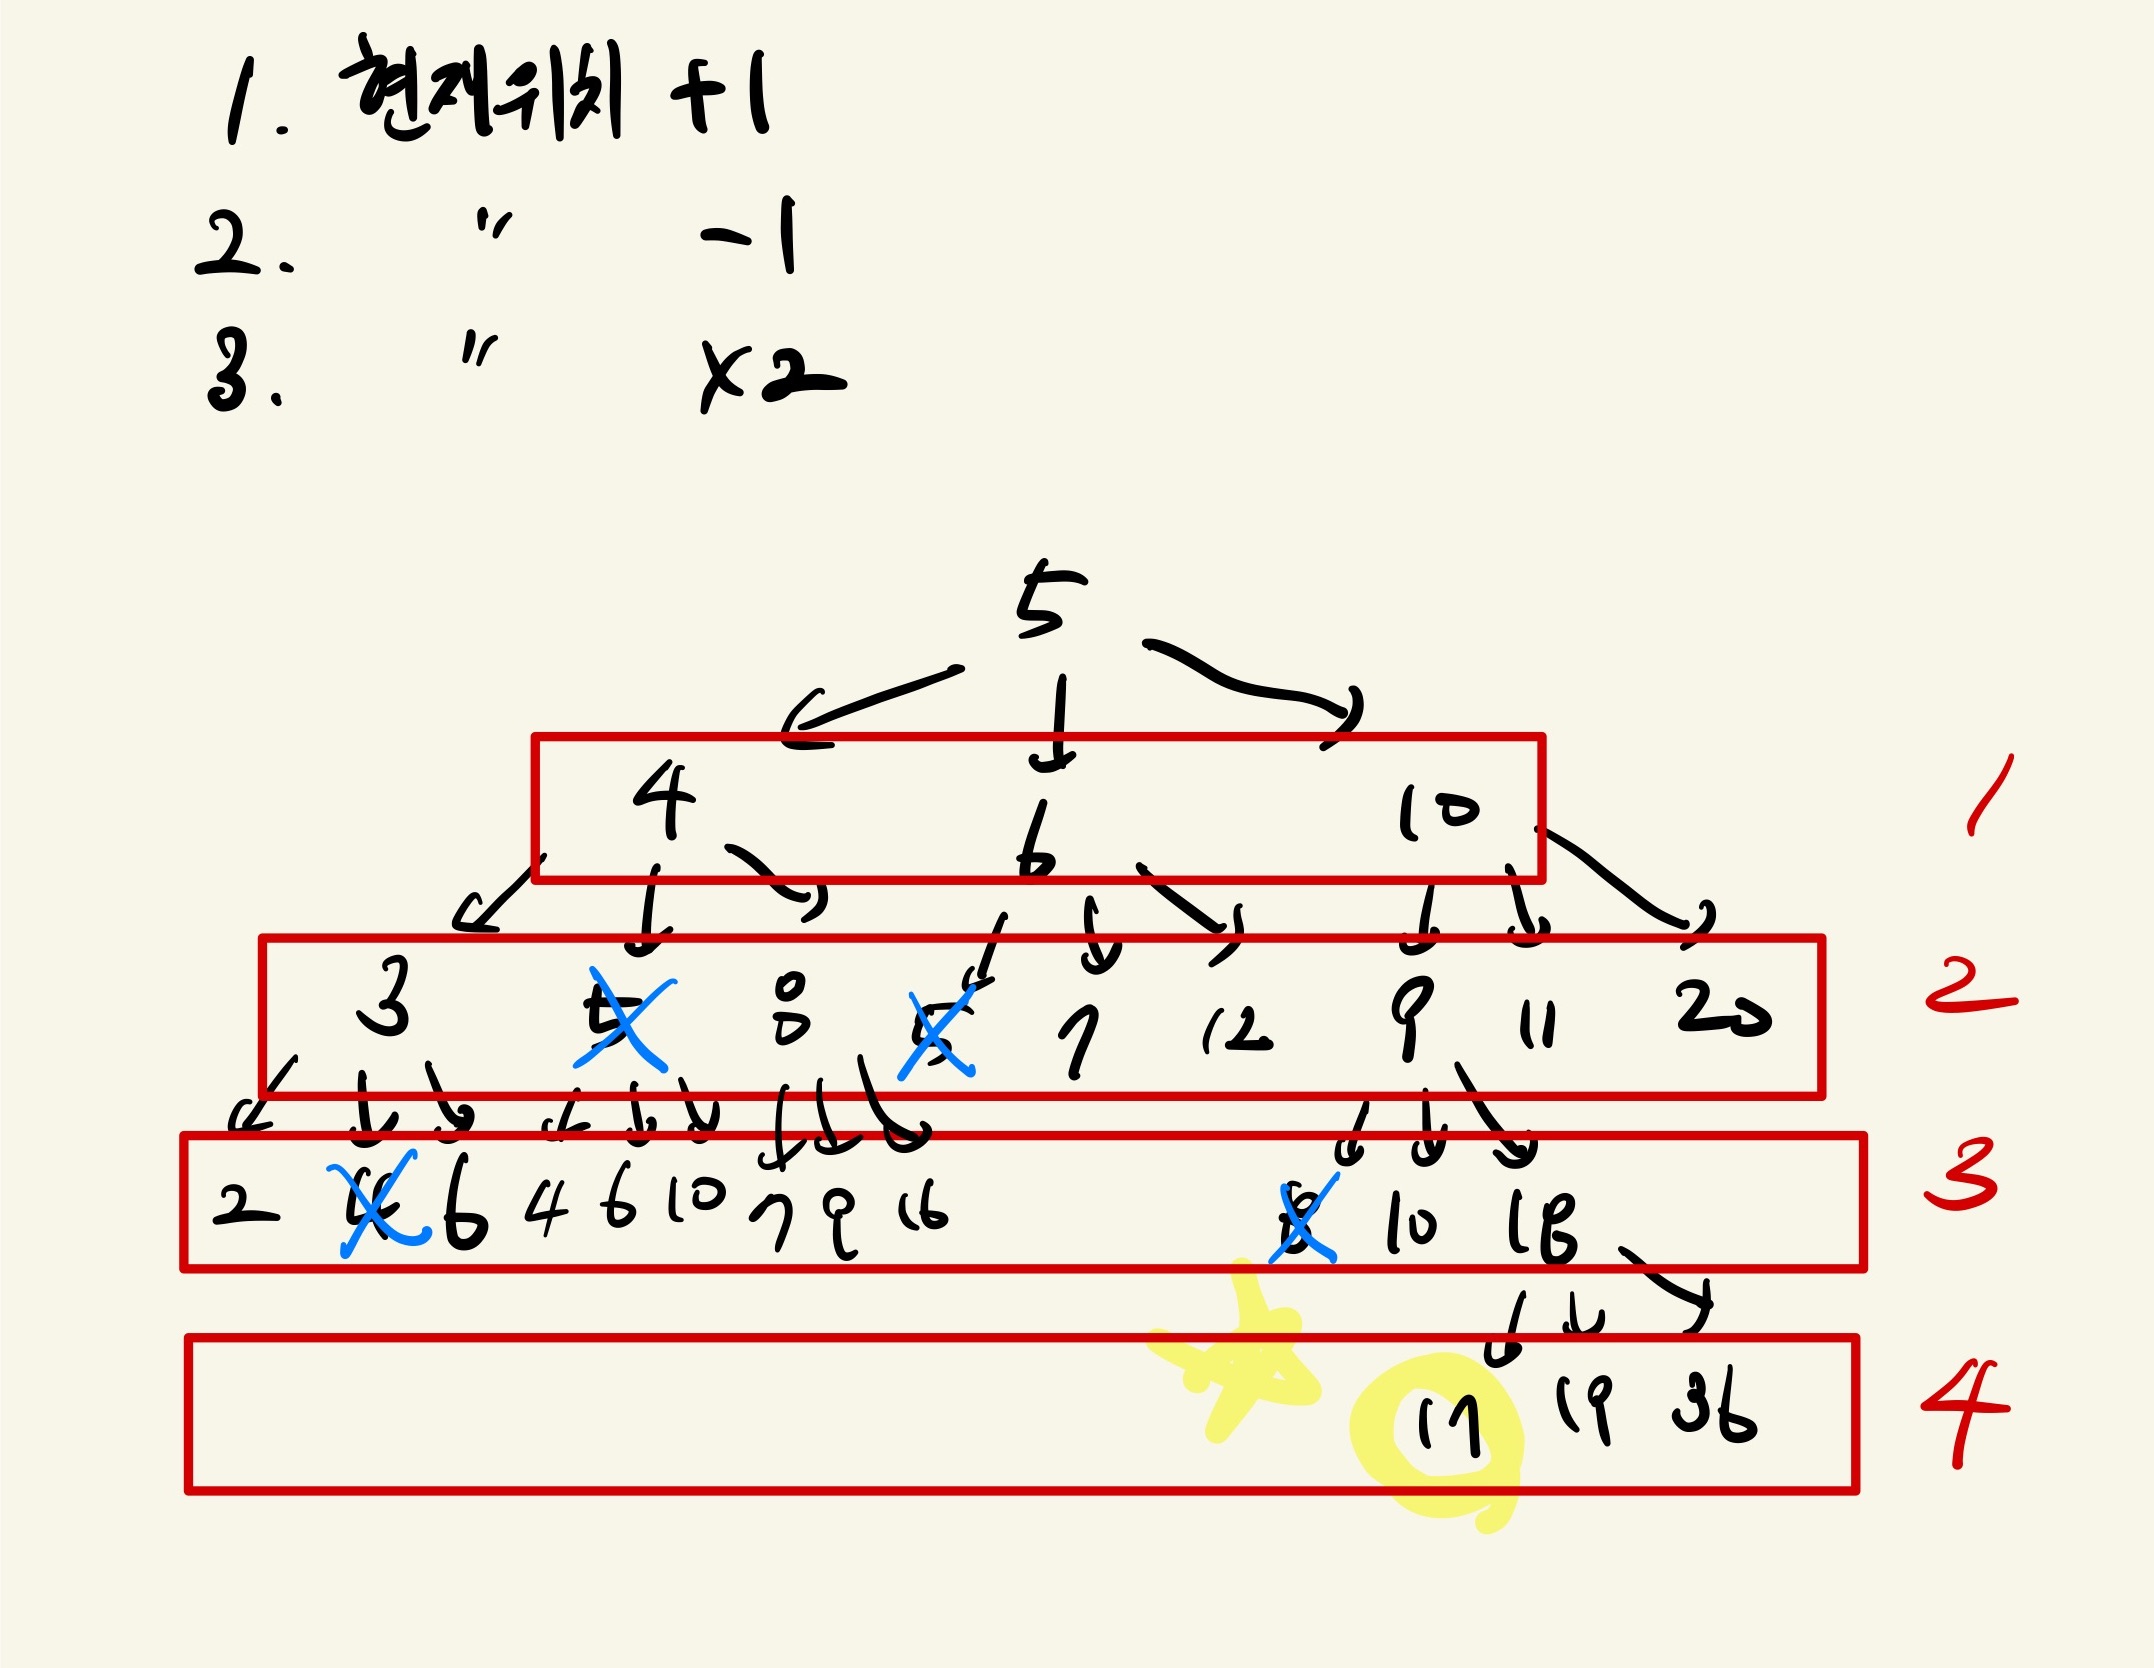 1. 현재위치 +1
2. " -1
3. " x2
5
4 6 10 1
3 5 8 5 7 12 9 11 20 2
2 4 6 4 6 10 7 9 16 8 10 18 3
17 19 36 4